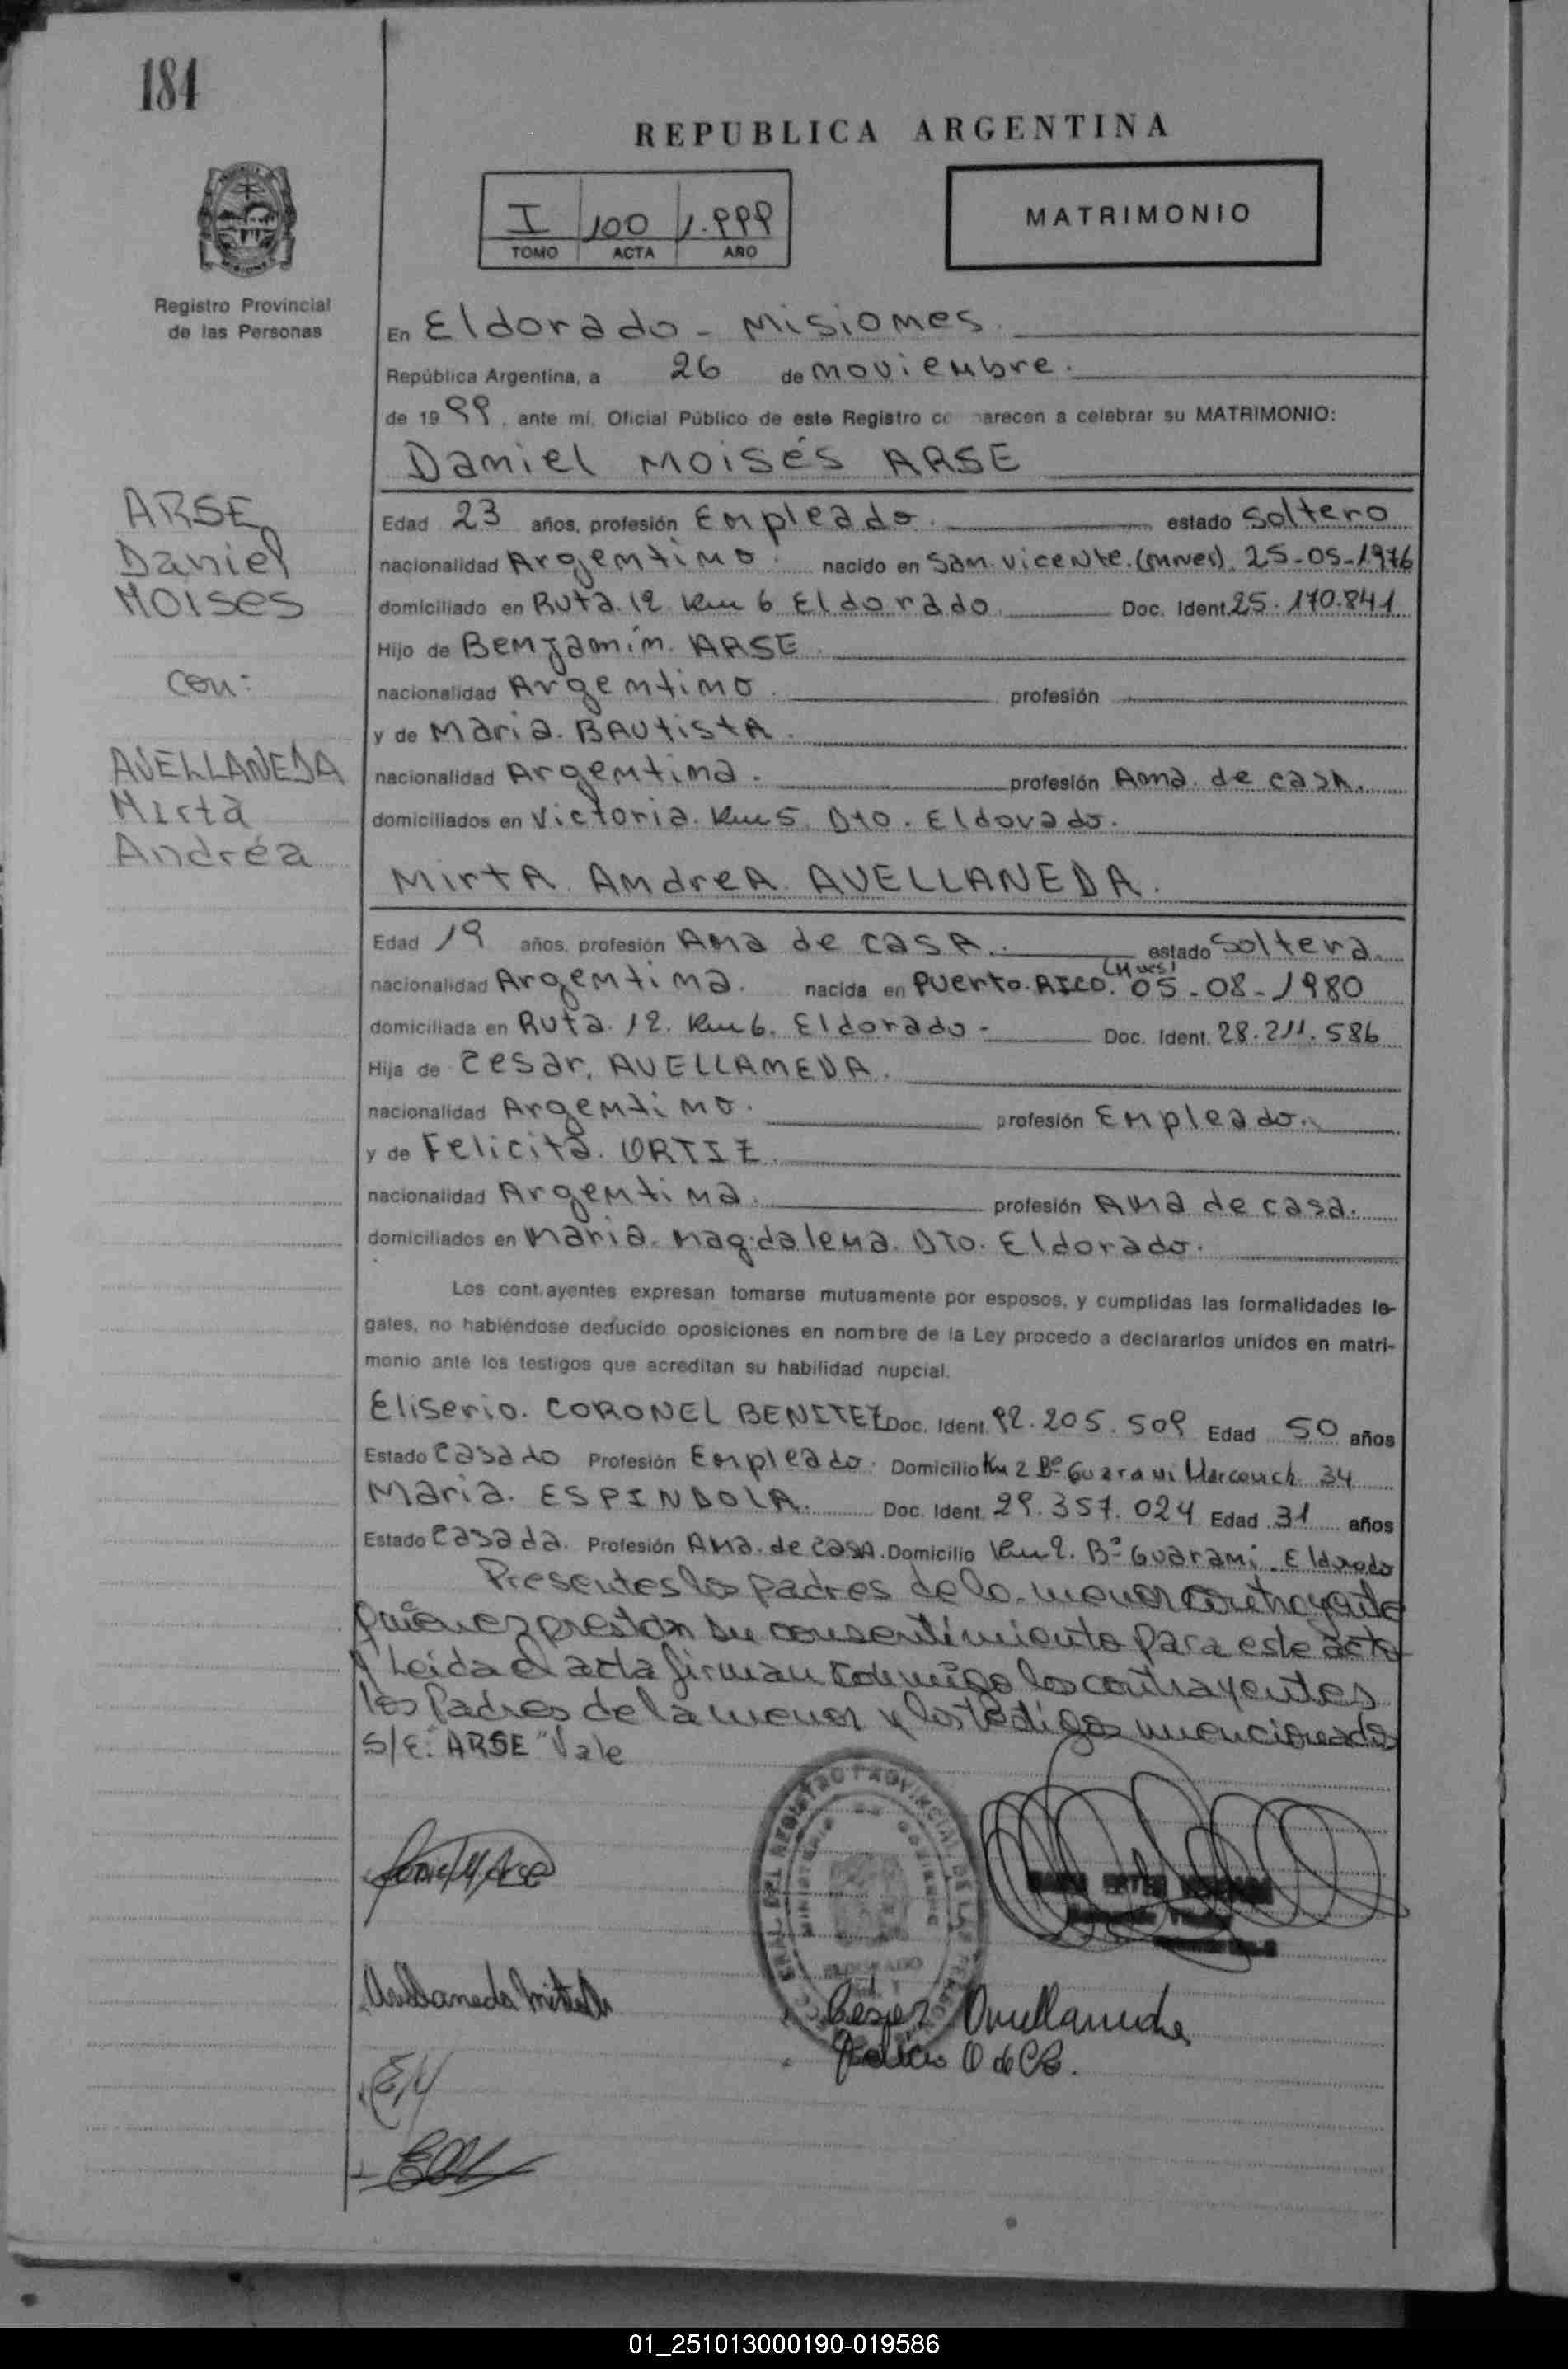 184
REPUBLICA ARGENTINA
I 100 1.999
TOMO ACTA AÑO
MATRIMONIO
Registro Provincial
de las Personas
En Eldorado - Misiones.
República Argentina, a 26 de noviembre.
de 1999, ante mí, Oficial Público de este Registro c arecen a celebrar su MATRIMONIO:
Daniel Moisés ARSE
ARSE
Daniel
Moises
con:
AVELLANEDA
Mirta
Andréa
Edad 23 años, profesión Empleado. estado Soltero
nacionalidad Argentino. nacido en San Vicente. (Mnes). 25-05-1976
domiciliado en Ruta. 12. Km 6 Eldorado Doc. Ident. 25.170.841
Hijo de Benjamín. ARSE.
nacionalidad Argentino. profesión
y de Maria. BAUtistA.
nacionalidad Argentina. profesión Ama. de casa.
domiciliados en Victoria. Km 5. Dto. Eldorado.
MirtA. AndreA. AVELLANEDA.
Edad 19 años, profesión Ama de casA. estado Soltera.
nacionalidad Argentina. nacida en Puerto. Rico. (Mnes) 05-08-1980
domiciliada en Ruta. 12. Km 6. Eldorado - Doc. Ident. 28.211.586
Hija de Cesar. AVELLANEDA.
nacionalidad Argentino. profesión Empleado.
y de Felicita. ORTIZ.
nacionalidad Argentina. profesión Ama de casa.
domiciliados en Maria. Magdalena. Dto. Eldorado.
Los cont.ayentes expresan tomarse mutuamente por esposos, y cumplidas las formalidades le-
gales, no habiéndose deducido oposiciones en nombre de la Ley procedo a declararlos unidos en matri-
monio ante los testigos que acreditan su habilidad nupcial.
Eliserio. CORONEL BENITEZ Doc. Ident. 92.205.509 Edad 50 años
Estado Casado Profesión Empleado. Domicilio Km 2 Bº Guarani Marcovich 34
Maria. ESPINDOLA. Doc. Ident. 29.357.024 Edad 31 años
Estado Casada. Profesión Ama. de casa. Domicilio Km 2. Bº Guarani. Eldorado
Presentes los padres de la menor contrayente
quienes prestan su consentimiento para este acto
Leida el acta firman conmigo los contrayentes
los Padres de la menor y los testigos mencionados
S/E: "ARSE" Vale
REGISTRO PROVINCIAL DE LAS
MINISTERIO DE GOBIERNO
ELDORADO
Avellaneda
Cesar Avellaneda
01_251013000190-019586